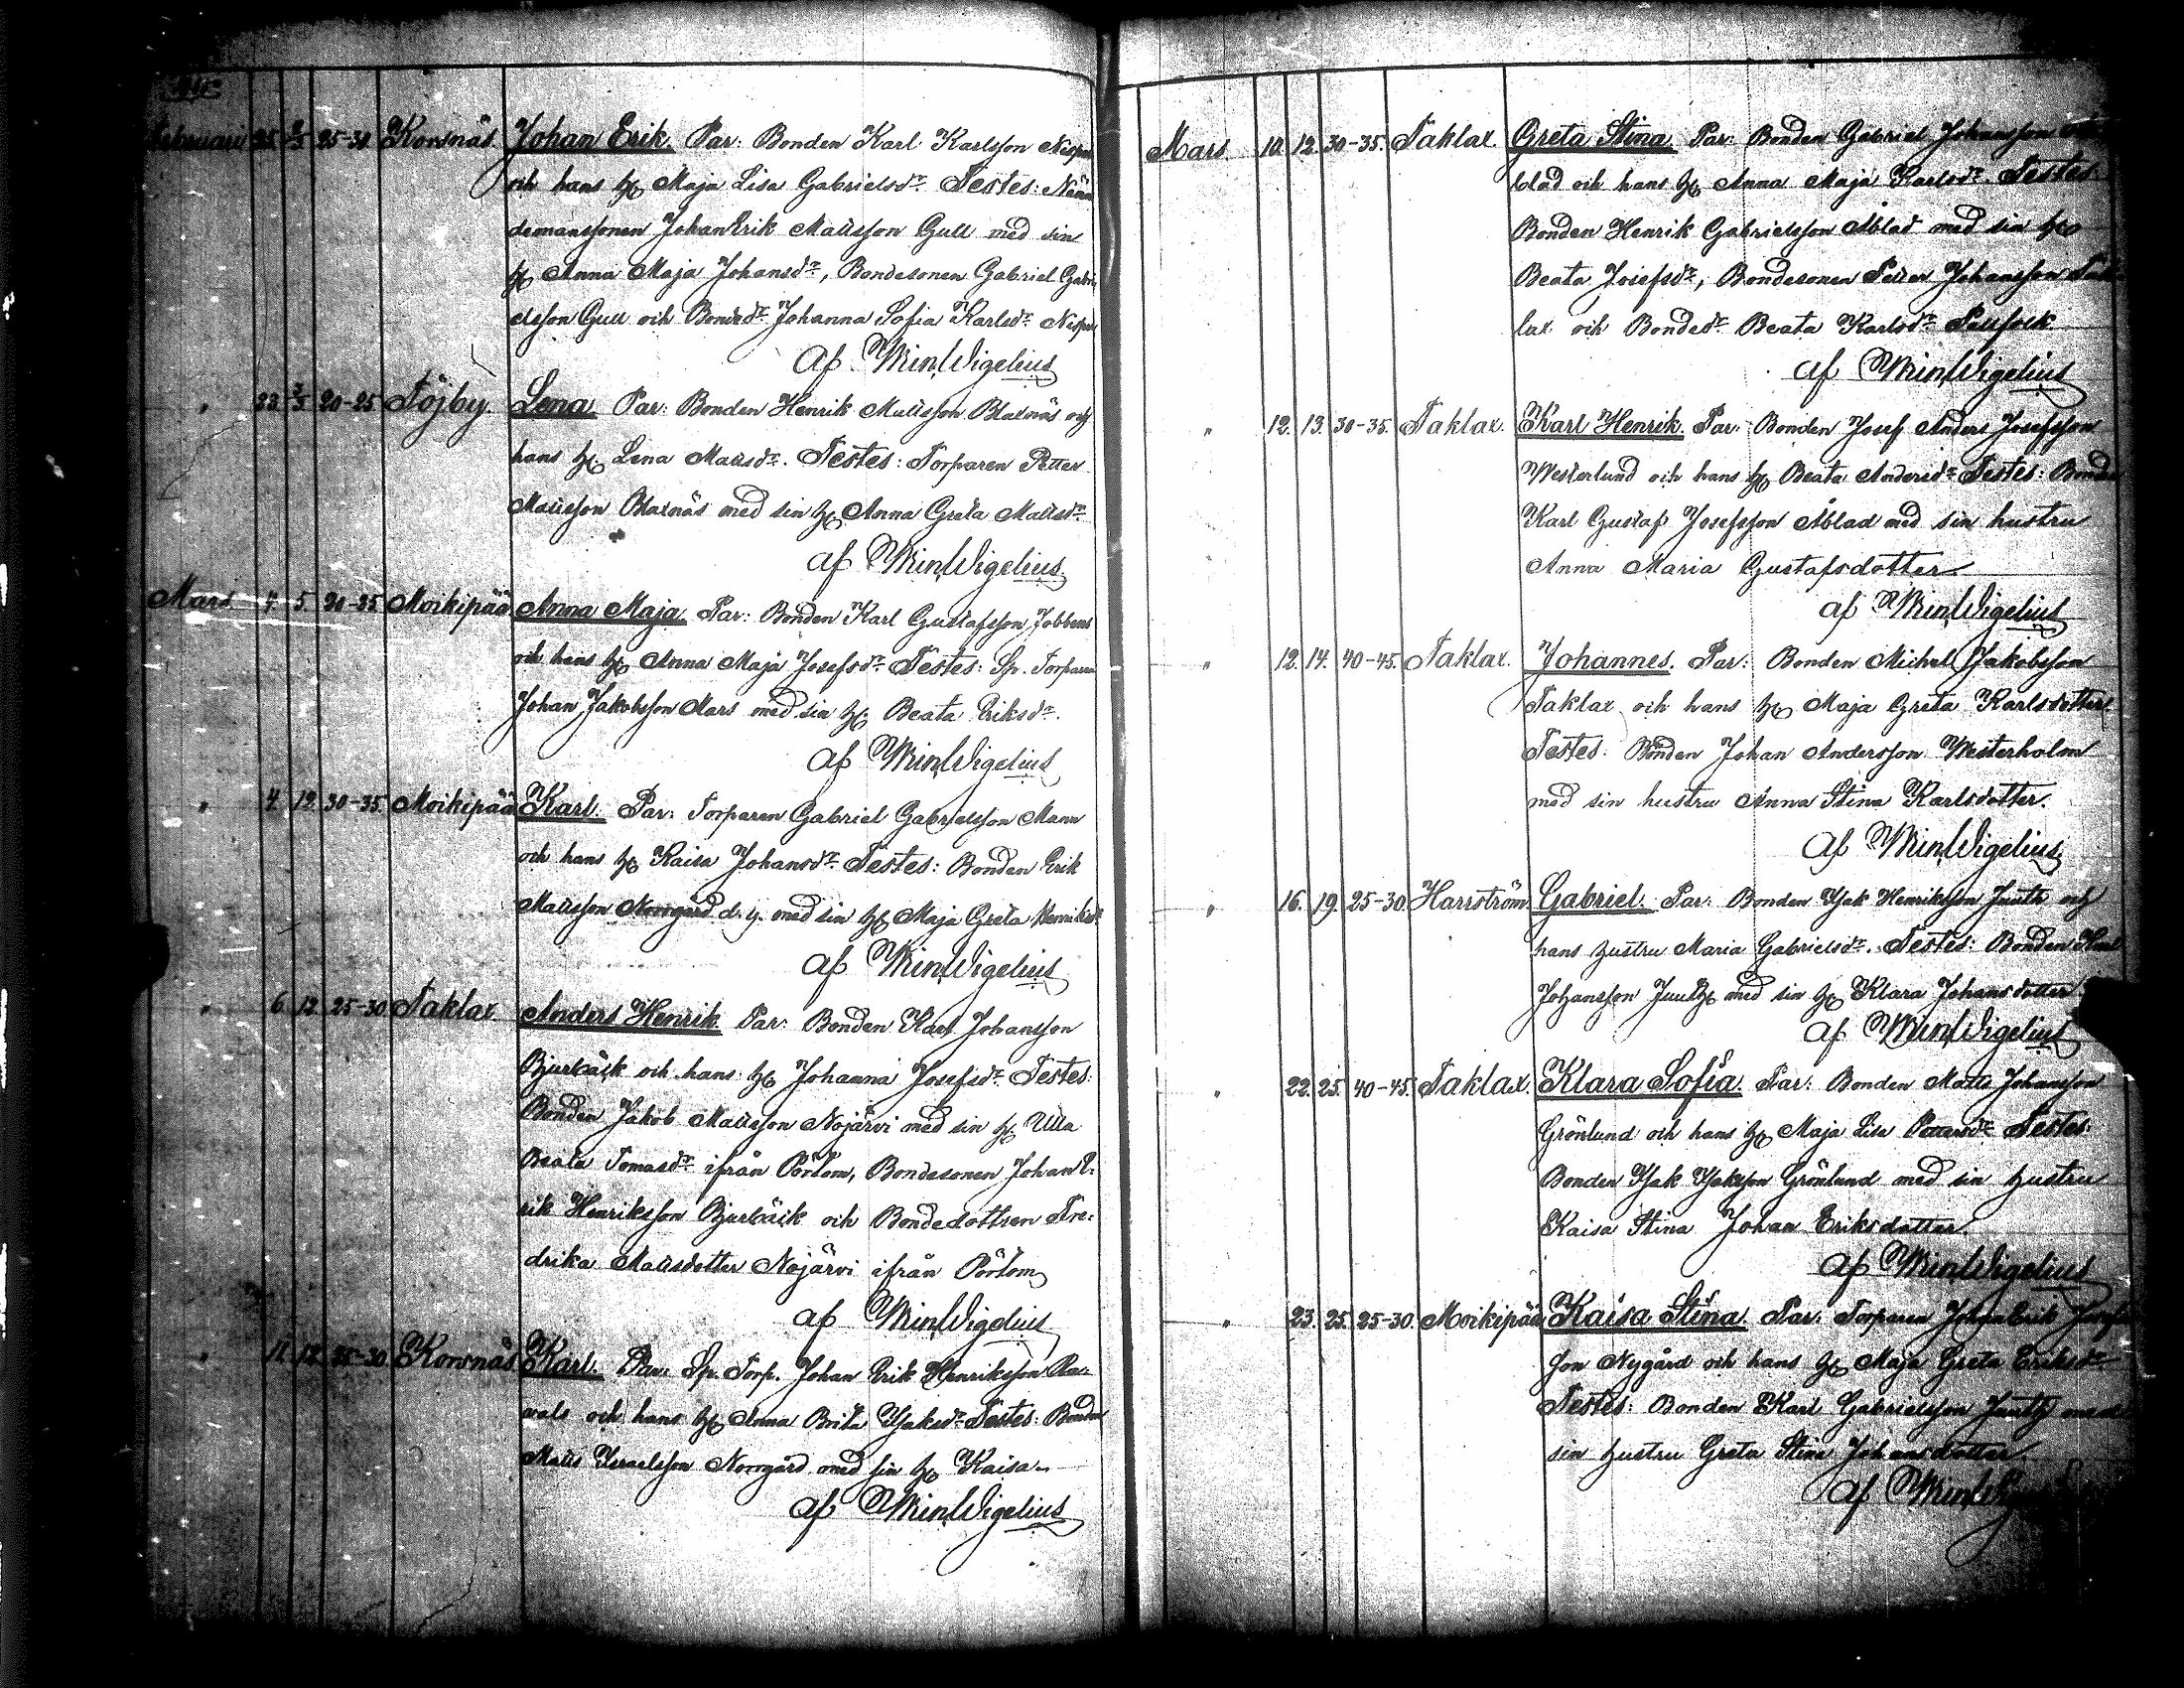 Februari 25. 2/3 25-30 Korsnäs Johan Erik. Par: Bonden Karl Karlsson
och hans h. Maja Lisa Gabrielsdr. Testes: Nämn
demanssonen Johan Erik Mattsson Gull med sin
h. Anna Maja Johansdr, Bondesonen Gabriel Gabri
elsson Gull och Bondedr Johanna Sofia Karlsdr
af Min. Wigelius
" 20-25 Töjby. Lena Par: Bonden Henrik Mattsson Blaxnäs och
hans h. Lena Mattsdr. Testes: Torparen Petter
Mattsson Blaxnäs med sin h. Anna Greta Mattsdr
af Min. Wigelius
Mars 4. 5. 20-25 Moikipää Anna Maja. Par: Bonden Karl Gustafsson Jobbens
och hans h. Anna Maja Josefsdr Testes: Sp. Torparen
Johan Jakobsson Mars med sin h. Beata Eriksdr.
af Min. Wigelius
" 4. 12. 30-35. Moikipää Karl. Par: Torparen Gabriel Gabrielsson Mann
och hans h. Kaisa Johansdr Testes: Bonden Erik
Mattsson Norrgård d. y. med sin h. Maja Greta Henriksdr
af Min. Wigelius
" 6. 12. 25-30 Taklax Anders Henrik. Par: Bonden Karl Johansson
Bjurbäck och hans h. Johanna Josefsdr Testes:
Bonden Jakob Mattsson Nojärvi med sin h. Ulla
Beata Tomasdr ifrån Pörtom, Bondesonen Johan E:
rik Henriksson Bjurbäck och Bondedottren Fre:
drika Mattsdotter Nojärvi ifrån Pörtom
af Min. Wigelius
" 11. 12. 25-30 Korsnäs Karl. Par: Sp. Torp. Johan Erik Henriksson Ra:
vals och hans h. Anna Brita Isaksdr Testes: Bonden
Matts Israelsson Norrgård med sin h. Kaisa
af Min. Wigelius
Mars. 10. 12. 30-35. Taklax. Greta Stina. Par: Bonden Gabriel Johansson
blad och hans h. Anna Maja Karlsdr. Testes:
Bonden Henrik Gabrielsson Åblad med sin h.
Beata Josefsdr, Bondesonen Petter Johansson Tak
lax och Bondedr Beata Karlsdr Sallfolk
af Min. Wigelius
" 12. 13. 30-35. Taklax. Karl Henrik. Par: Bonden Josef Anders Josefsson
Westerlund och hans h. Beata Andersdr Testes: Bonden
Karl Gustaf Josefsson Åblad med sin hustru
Anna Maria Gustafsdotter
af Min. Wigelius
" 12. 14. 40-45. Taklax. Johannes. Par: Bonden Michel Jakobsson
Taklax och hans h. Maja Greta Karlsdotter
Testes. Bonden Johan Andersson Westerholm
med sin hustru Anna Stina Karlsdotter.
af Min. Wigelius
" 16. 19. 25-30 Harrström Gabriel. Par: Bonden Isak Henriksson Juuth och
hans hustru Maria Gabrielsdr. Testes: Bonden Karl
Johansson Juuth med sin h. Klara Johansdotter
af Min. Wigelius
" 22. 25. 40-45. Taklax. Klara Sofia. Par: Bonden Matts Johansson
Grönlund och hans h. Maja Lisa Pettersdr Testes:
Bonden Isak Isaksson Grönlund med sin hustru
Kaisa Stina Johan Eriksdotter.
af Min. Wigelius
" 23. 25. 25-30. Moikipää Kaisa Stina. Par: Torparen Johan Erik
son Nygård och hans h. Maja Greta Eriksdr
Testes: Bonden Karl Gabrielsson Juuth med
sin hustru Greta Stina Johansdotter
af Min. Wigelius